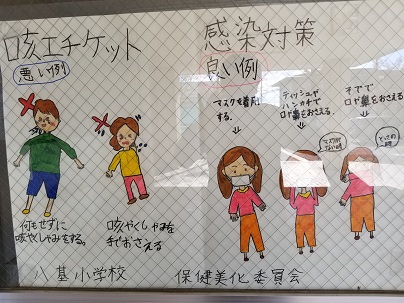 咳エチケット
悪い例
何もせずに
咳やくしゃみをする。
咳やくしゃみを
手でおさえる
感染対策
良い例
マスクを着用
する。
ティッシュや
ハンカチで
口や鼻をおさえる。
マスクが
ない時
そでで
口や鼻をおさえる。
とっさの
時
八基小学校
保健美化委員会